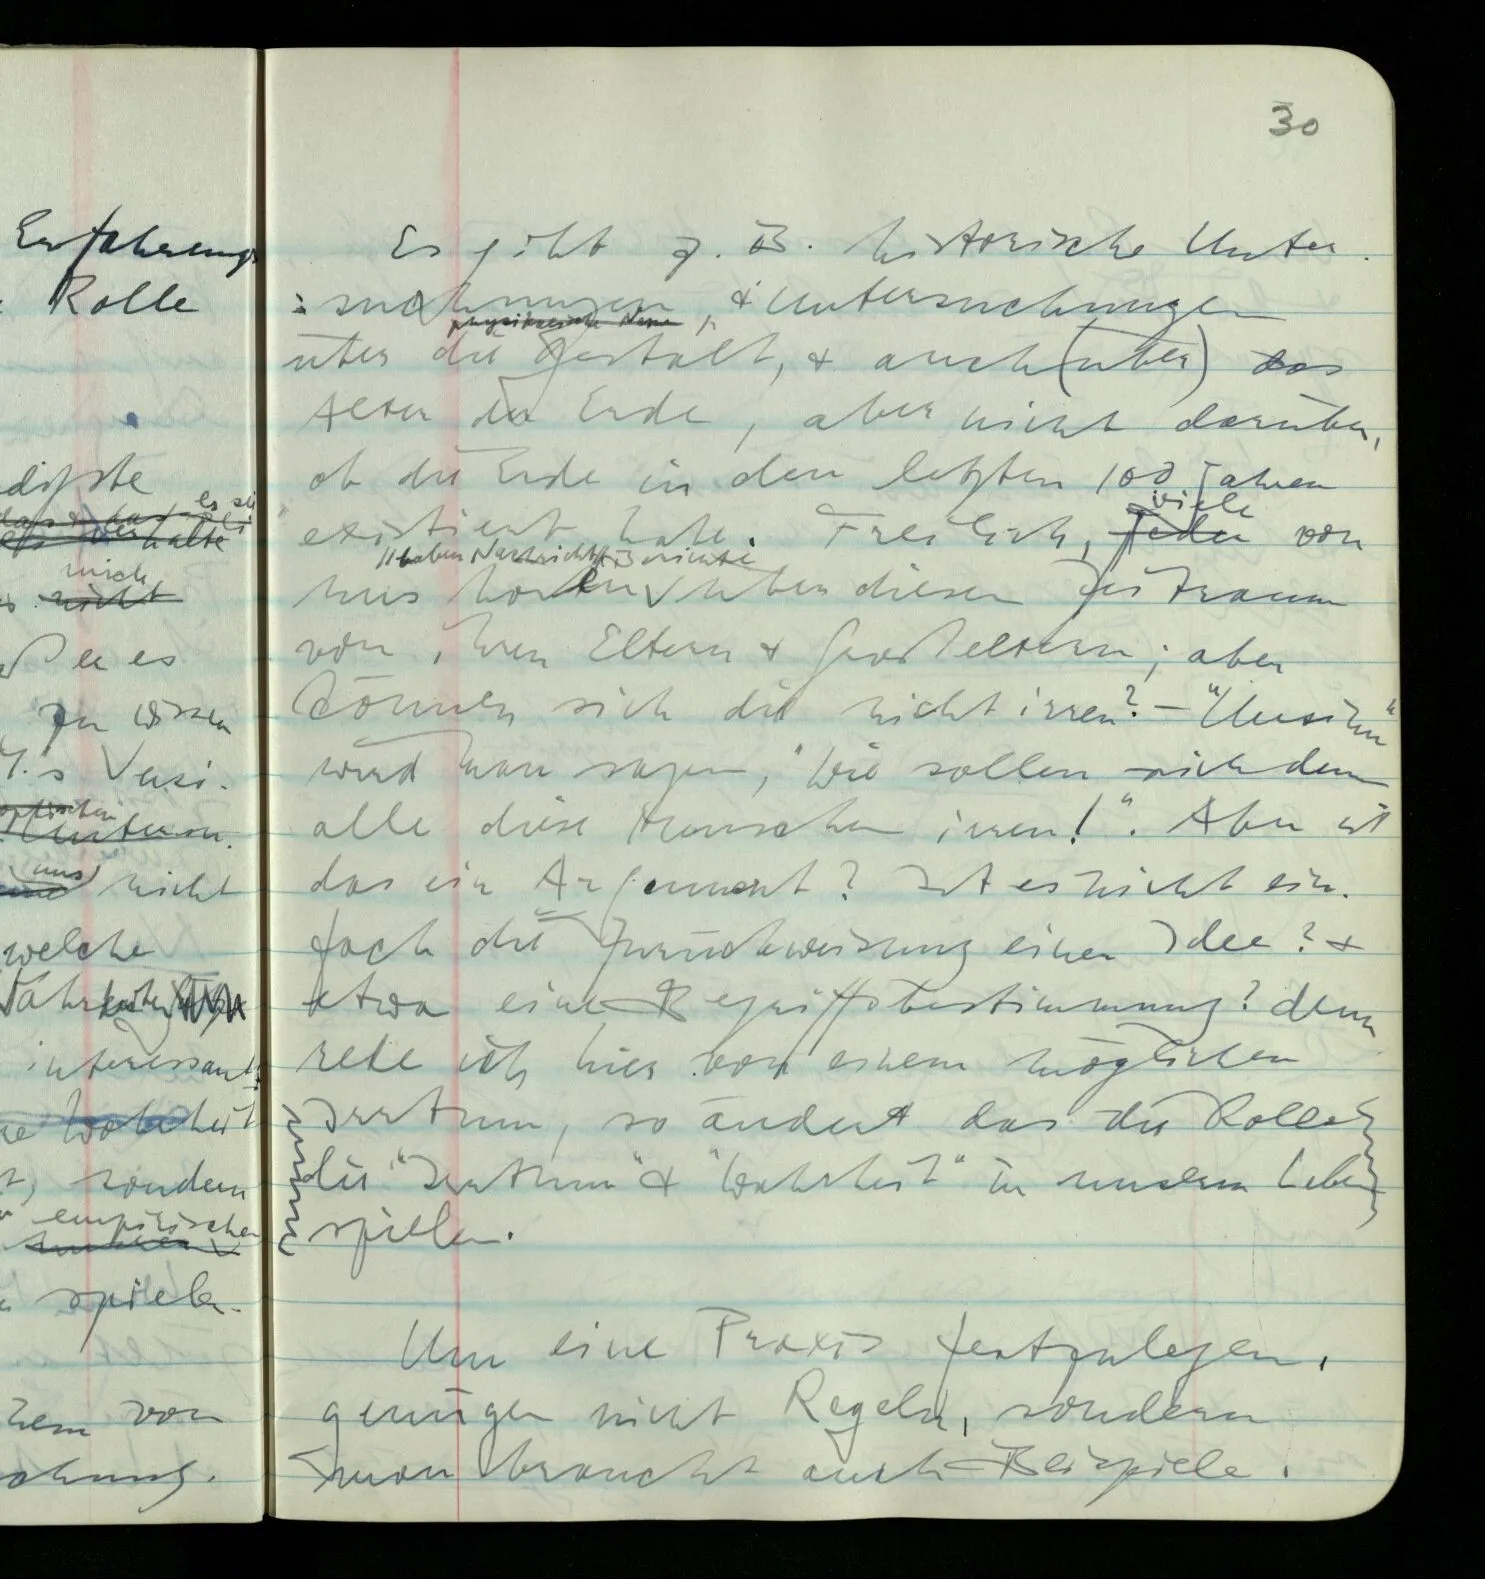 30
Erfahrungs
Rolle
digste
es sei
verhalte
mich
nicht
er es
zu wissen
's Versi-
optischen
Untersu.
uns nicht
welche
Wahrheiten
interessant
Wahrheit
, sondern
empirischen
spielen.
von
Es gibt z. B. historische Unter.
: suchungen, & Untersuchungen
physikalische
über die Gestalt, & auch (über) das
Alter der Erde, aber nicht darüber,
ob die Erde in den letzten 100 Jahren
viele
existiert habe. Freilich, jeder von
// haben Nachricht // Berichte
uns hören über diesen Zeitraum
von ihren Eltern & Großeltern; aber
können sich die nicht irren? – "Unsinn"
wird man sagen, "Wie sollen sich denn
alle diese Menschen irren!". Aber ist
das ein Argument? Ist es nicht ein.
fach die Zurückweisung einer Idee? &
etwa eine Begriffsbestimmung? denn
rede ich hier von einem möglichen
Irrtum, so ändert das die Rolle
die "Irrtum" & "Wahrheit" in unserm Leben
spielen.
Um eine Praxis festzulegen,
genügen nicht Regeln, sondern
man braucht auch Beispiele.